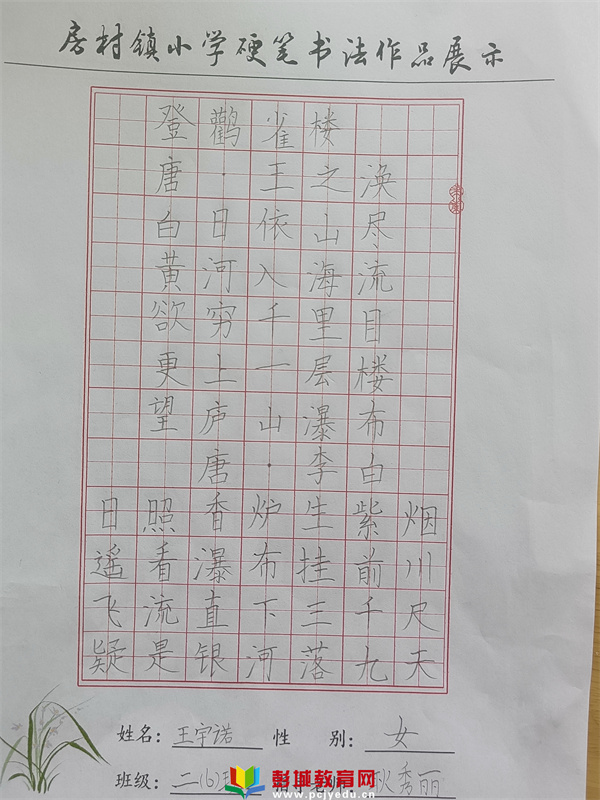 房村镇小学硬笔书法作品展示
登鹳雀楼
唐·王之涣
白日依山尽、
黄河入海流
欲穷千里目
更上一层楼
望庐山瀑布
唐·李白
日照香炉生紫烟
遥看瀑布挂前川
飞流直下三千尺
疑是银河落九天
姓名：王宇诺 性 别：女
班级：二(6)班 秀丽
彭城教育网
www.pcjyedu.cn